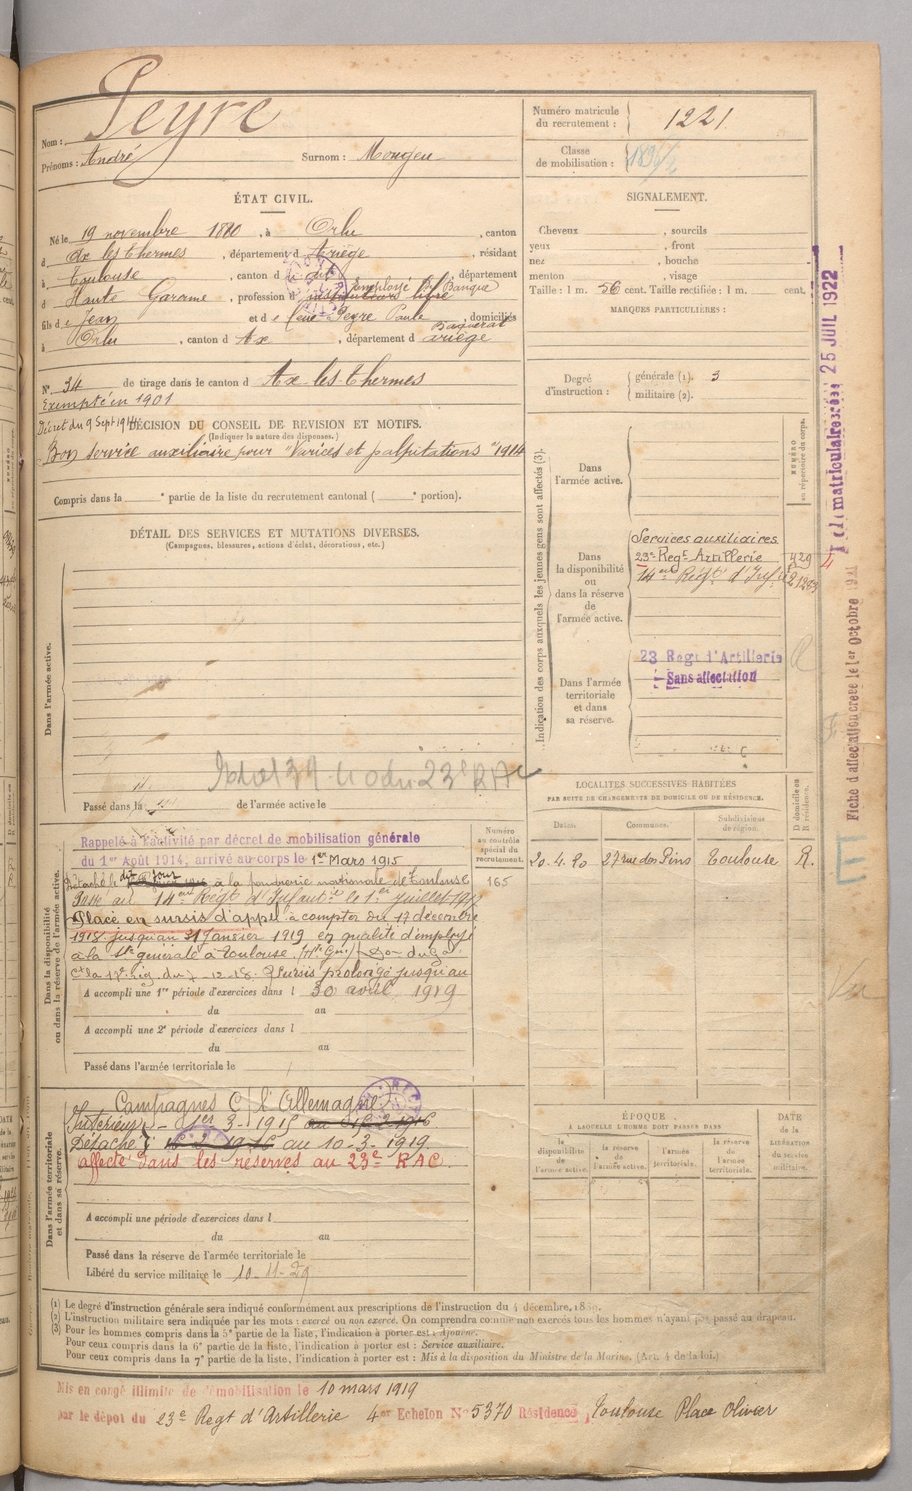 Nom : Peyre
Prénoms : André Surnom : Mongeu
Numéro matricule du recrutement : 1221
Classe de mobilisation :
ÉTAT CIVIL.
Né le 19 novembre 1880, à Orlu, canton
d Ax les thermes, département d Ariège, résidant
à toulouse, canton d dit, département
employé de Banque
d Haute Garonne, profession d instituteur libre
fils de Jean et de feue Peyre Paule Baquerat, domiciliés
à Orlu, canton d Ax, département d ariège
N° 34 de tirage dans le canton d Ax-les-thermes
Exempté en 1901
Décret du 9 Sept 1914
DÉCISION DU CONSEIL DE REVISION ET MOTIFS.
(Indiquer la nature des dispenses.)
Bon service auxiliaire pour "Varices et palpitations" 1914
Compris dans la e partie de la liste du recrutement cantonal ( e portion).
SIGNALEMENT.
Cheveux , sourcils
yeux , front
nez , bouche
menton , visage
Taille : 1 m. 56 cent. Taille rectifiée : 1 m. cent.
MARQUES PARTICULIÈRES :
Degré d'instruction : générale (1). 3
militaire (2).
DÉTAIL DES SERVICES ET MUTATIONS DIVERSES.
(Campagnes, blessures, actions d'éclat, décorations, etc.)
Dans l'armée active.
Passé dans la de l'armée active le
Indication des corps auxquels les jeunes gens sont affectés (3).
NUMÉRO au répertoire du corps.
Dans l'armée active.
Dans la disponibilité ou dans la réserve de l'armée active.
Services auxiliaires
23e Regt Artillerie 429
14ème Régt d'Infie
Dans l'armée territoriale et dans sa réserve.
23 Regt d'Artillerie
Sans affectation
25 JUIL 1922
Fiche d'affectation créée le 1er octobre
LOCALITÉS SUCCESSIVES HABITÉES
PAR SUITE DE CHANGEMENTS DE DOMICILE OU DE RÉSIDENCE.
Dates. Communes. Subdivisions de région. D domicile ou R résidence.
20.4.20 27 rue des Pins Toulouse R.
Dans la disponibilité ou dans la réserve de l'armée active.
Numéro au contrôle spécial du recrutement.
165
Rappelé à l'activité par décret de mobilisation générale
du 1er Août 1914, arrivé au corps le 1er Mars 1915
Détaché le dit jour à la poudrerie nationale de Toulouse
Passé au 14ème Régt d'Infant. le 1er juillet 1917
Placé en sursis d'appel à compter du 17 décembre
1918 jusqu'au 31 Janvier 1919 en qualité d'employé
à la Sté générale à Toulouse (Hte Gne)
Sursis prolongé jusqu'au
A accompli une 1re période d'exercices dans l 30 avril 1919
du au
A accompli une 2e période d'exercices dans l
du au
Passé dans l'armée territoriale le
Dans l'armée territoriale et dans sa réserve.
Campagnes C/ l'Allemagne
Intérieur - 1er 3-1915 au 1er 2 1916
Détaché au 10-3-1919
affecté dans les réserves au 23e RAC
A accompli une période d'exercices dans l
du au
Passé dans la réserve de l'armée territoriale le
Libéré du service militaire le 10-11-29
ÉPOQUE
À LAQUELLE L'HOMME DOIT PASSER DANS
la disponibilité de l'armée active. la réserve de l'armée active. l'armée territoriale. la réserve de l'armée territoriale.
DATE de la LIBÉRATION du service militaire.
(1) Le degré d'instruction générale sera indiqué conformément aux prescriptions de l'instruction du 4 décembre 1889.
(2) L'instruction militaire sera indiquée par les mots : exercé ou non exercé. On comprendra comme non exercés tous les hommes n'ayant pas passé au drapeau.
(3) Pour les hommes compris dans la 5e partie de la liste, l'indication à porter est : Ajourné.
Pour ceux compris dans la 6e partie de la liste, l'indication à porter est : Service auxiliaire.
Pour ceux compris dans la 7e partie de la liste, l'indication à porter est : Mis à la disposition du Ministre de la Marine. (Art. 4 de la loi.)
Mis en congé illimité de démobilisation le 10 mars 1919
par le dépôt du 23e Regt d'Artillerie 4er Echelon N° 5370 Résidence, Toulouse Place Olivier